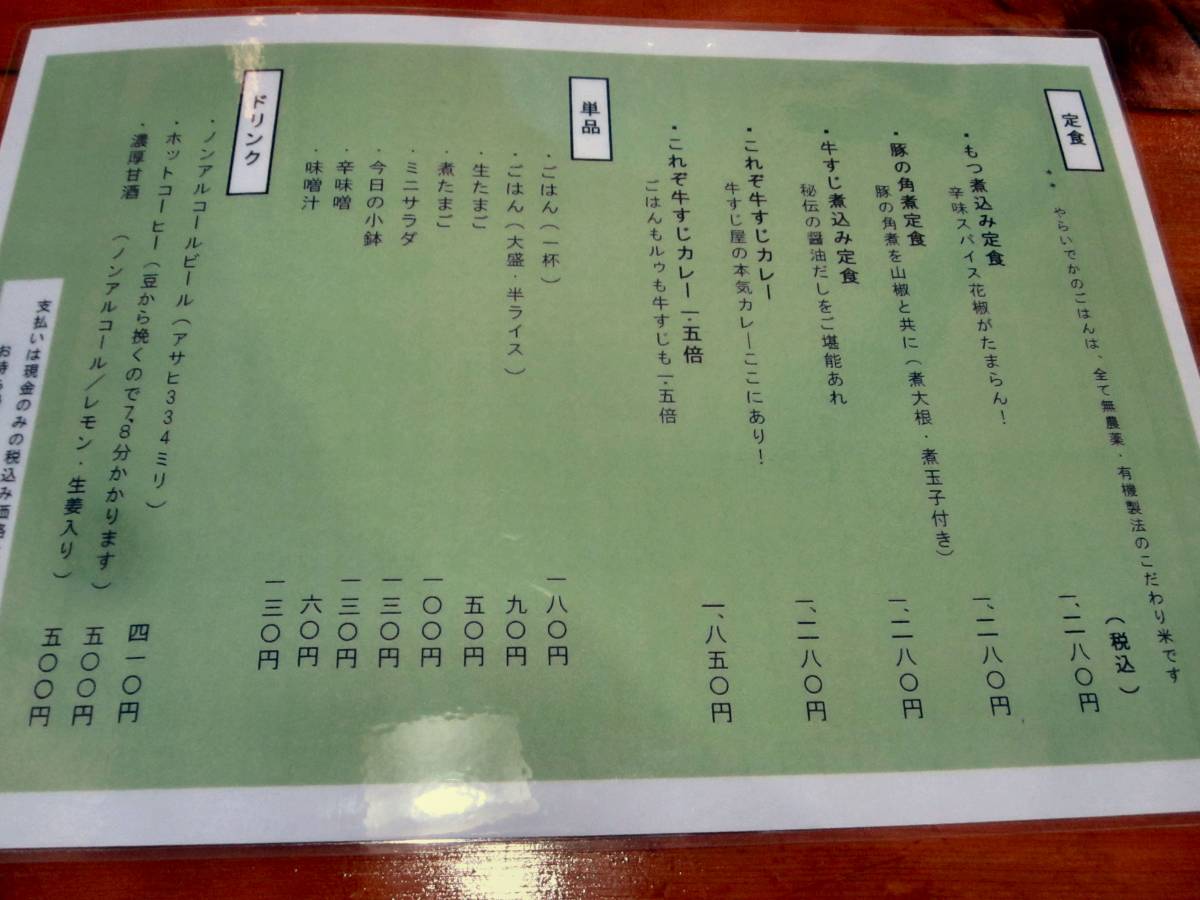 定食
** やらいでかのごはんは、全て無農薬・有機製法のこだわり米です
（税込）
・もつ煮込み定食
一、二八〇円
辛味スパイス花椒がたまらん！
・豚の角煮定食
一、二八〇円
豚の角煮を山椒と共に（煮大根・煮玉子付き）
・牛すじ煮込み定食
一、二八〇円
秘伝の醤油だしをご堪能あれ
・これぞ牛すじカレー
一、二八〇円
牛すじ屋の本気カレーここにあり！
・これぞ牛すじカレー一・五倍
一、八五〇円
ごはんもルゥも牛すじも一・五倍
単品
・ごはん（一杯）
一八〇円
・ごはん（大盛・半ライス）
九〇円
・生たまご
五〇円
・煮たまご
一〇〇円
・ミニサラダ
一三〇円
・今日の小鉢
一三〇円
・辛味噌
六〇円
・味噌汁
一三〇円
ドリンク
・ノンアルコールビール（アサヒ334ミリ）
四一〇円
・ホットコーヒー（豆から挽くので7,8分かかります）
五〇〇円
・濃厚甘酒（ノンアルコール／レモン・生姜入り）
五〇〇円
支払いは現金のみの税込み価格
お持ち